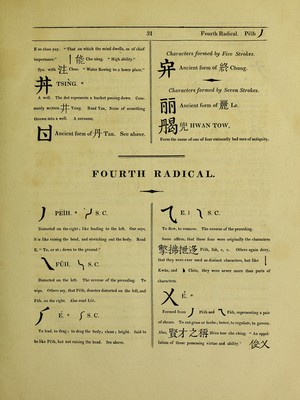 31
Fourth Radical. Peĭh 丿
If so thou yay. "That on which the mind dwells, as of chief
importance." 能 Che năng. "High ability."
Syn. with 注 Choo. "Water flowing to a lower place."
丼 TSING.
A well. The dot represents a bucket passing down. Com-
monly written 井 Tsing. Read Tan, Noise of something
thrown into a well. A surname.
Ancient form of 丹 Tan. See above.
Characters formed by Five Strokes.
Ancient form of 終 Chung.
Characters formed by Seven Strokes.
丽 Ancient form of 麗 Le.
兜 HWAN TOW,
Form the name of one of four eminently bad men of antiquity.
FOURTH RADICAL.
丿 PEĬH. S. C.
Distorted on the right; like leading to the left. One says,
it is like raising the head, and stretching out the body. Read
E, "To, or at; down to the ground."
FŬH, S. C.
Distorted on the left. The reverse of the preceding. To
wipe. Others say, that Peĭh, denotes distorted on the left, and
Fŭh, on the right. Also read Lĕĕ.
É S. C.
To lead, to drag; to drag the body; clear; bright. Said to
be like Peĭh, but not raising the head. See above.
E. S. C.
To flow, to remove. The reverse of the preceding.
Some affirm, that these four were originally the characters
擎拂 Peĭh, Fŭh, e, e. Others again deny,
that they were ever used as distinct characters, but like
Kwăn, and Choo, they were never more than parts of
characters.
乂 É
Formed from 丿 Peĭh and Fŭh, representing a pair
of shears. To cut grass or herbs; hence, to regulate, to govern.
Also, 賢才之稱 Hëen tsae che ching. "An appel-
lation of those possessing virtue and ability." 俊乂